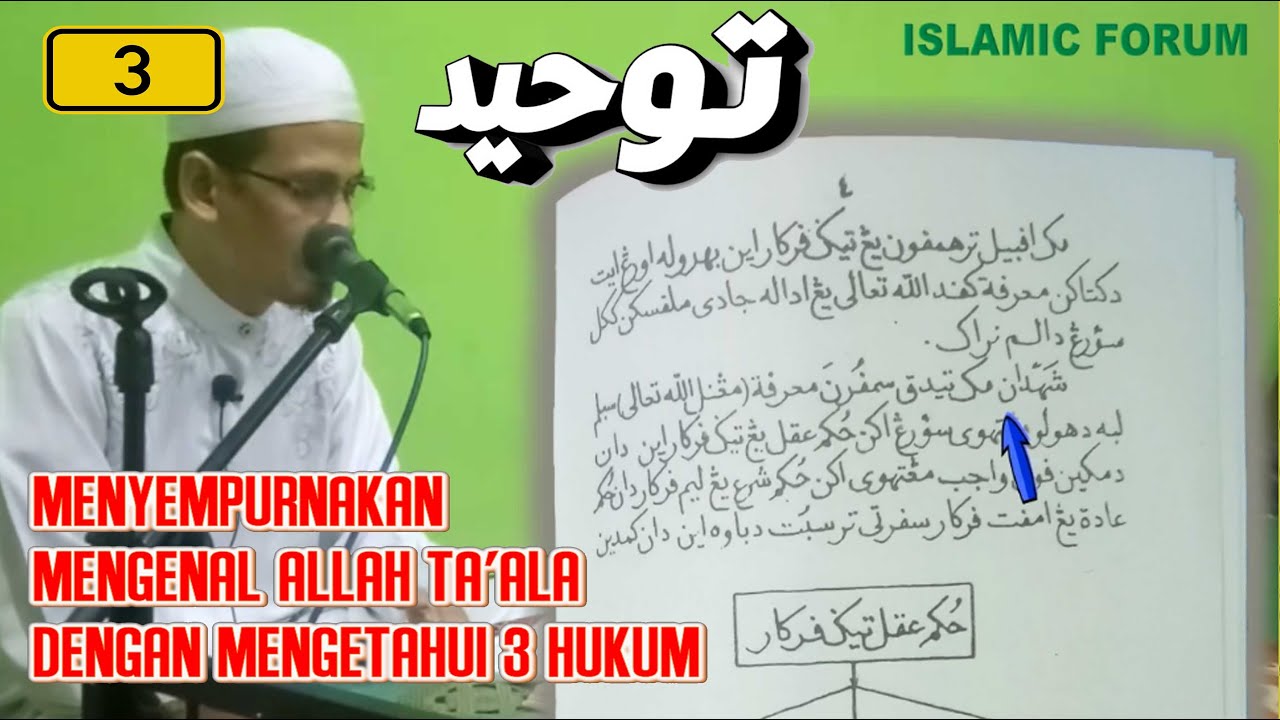 3
توحيد
ISLAMIC FORUM
٤
مک افبيل ترهمفون يڠ تيک فرکار اين بهروله اورڠ ايت
دکتاکن معرفة کفد الله تعالى يڠ اداله جادي ملفسکن ککل
سؤرڠ دالم نراک.
شَهِدَان مک تيدق سمفُرنَ معرفة (مڠنل الله تعالى)
لبه دهولو سؤرڠ اکن حُکم عقل يڠ تيک فرکار اين دان
دمکين واجب مڠتهوي اکن حُکم شرع يڠ ليم فرکار دان حُکم
عادة يڠ امفت فرکار سفرتي ترسبُت دباوه اين دان کمدين
حُکم عقل تيک فرکار
MENYEMPURNAKAN
MENGENAL ALLAH TA'ALA
DENGAN MENGETAHUI 3 HUKUM